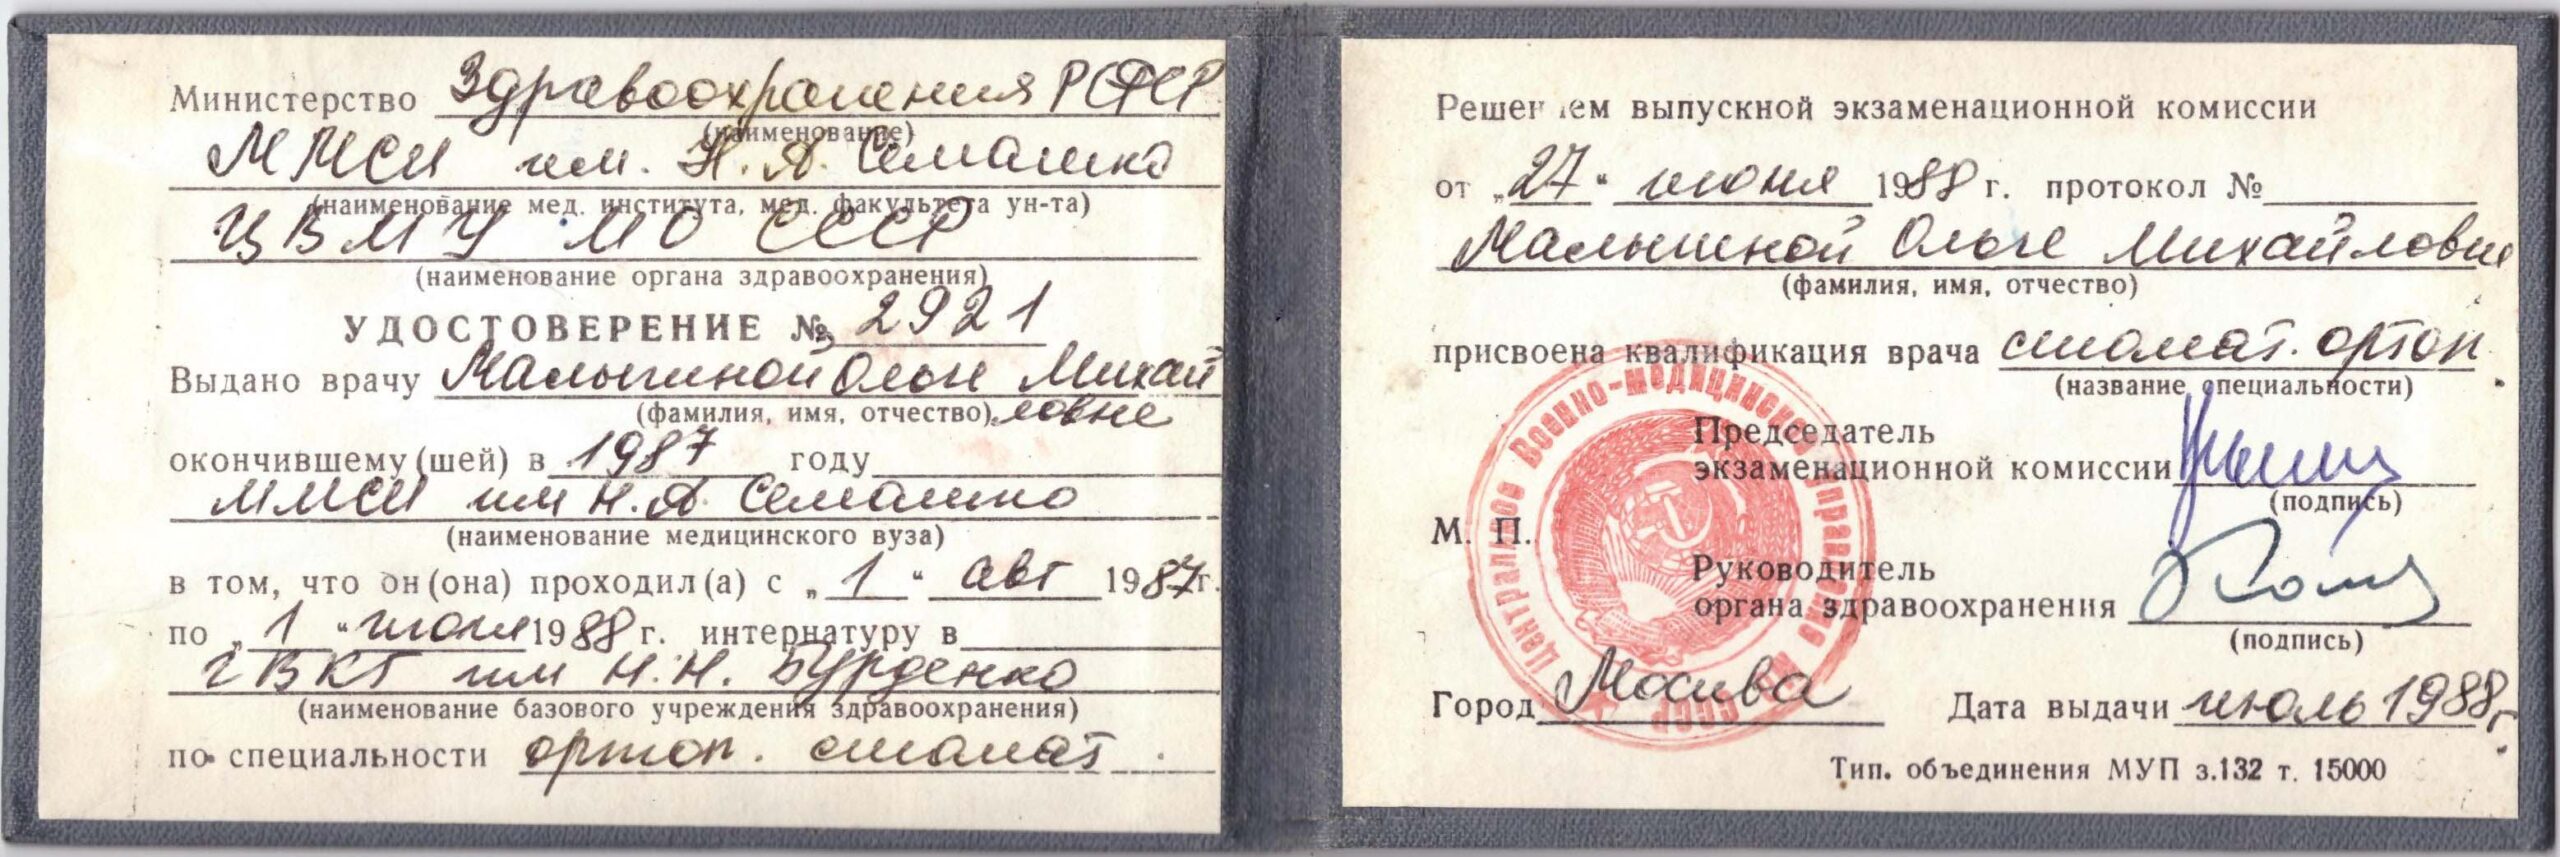 Министерство Здравоохранения РСФСР
(наименование)
ММСИ им. Н.А. Семашко
(наименование мед. института, мед. факультета ун-та)
ЦВМУ МО СССР
(наименование органа здравоохранения)
УДОСТОВЕРЕНИЕ № 2921
Выдано врачу Малыгиной Ольге Михай
(фамилия, имя, отчество) ловне
окончившему (шей) в 1987 году
ММСИ им Н.А. Семашко
(наименование медицинского вуза)
в том, что он (она) проходил (а) с „1“ авг 1987г.
по „1“ июля 1988 г. интернатуру в
ГВКГ им Н.Н. Бурденко
(наименование базового учреждения здравоохранения)
по специальности ортоп. стомат.
Решением выпускной экзаменационной комиссии
от „27“ июня 1988 г. протокол №
Малыгиной Ольге Михайловне
(фамилия, имя, отчество)
присвоена квалификация врача стомат. ортоп.
(название специальности)
Председатель
экзаменационной комиссии
(подпись)
М. П.
Руководитель
органа здравоохранения
(подпись)
Город Москва Дата выдачи июль 1988г.
Тип. объединения МУП з.132 т. 15000
Центральное Военно-медицинское управление МО СССР